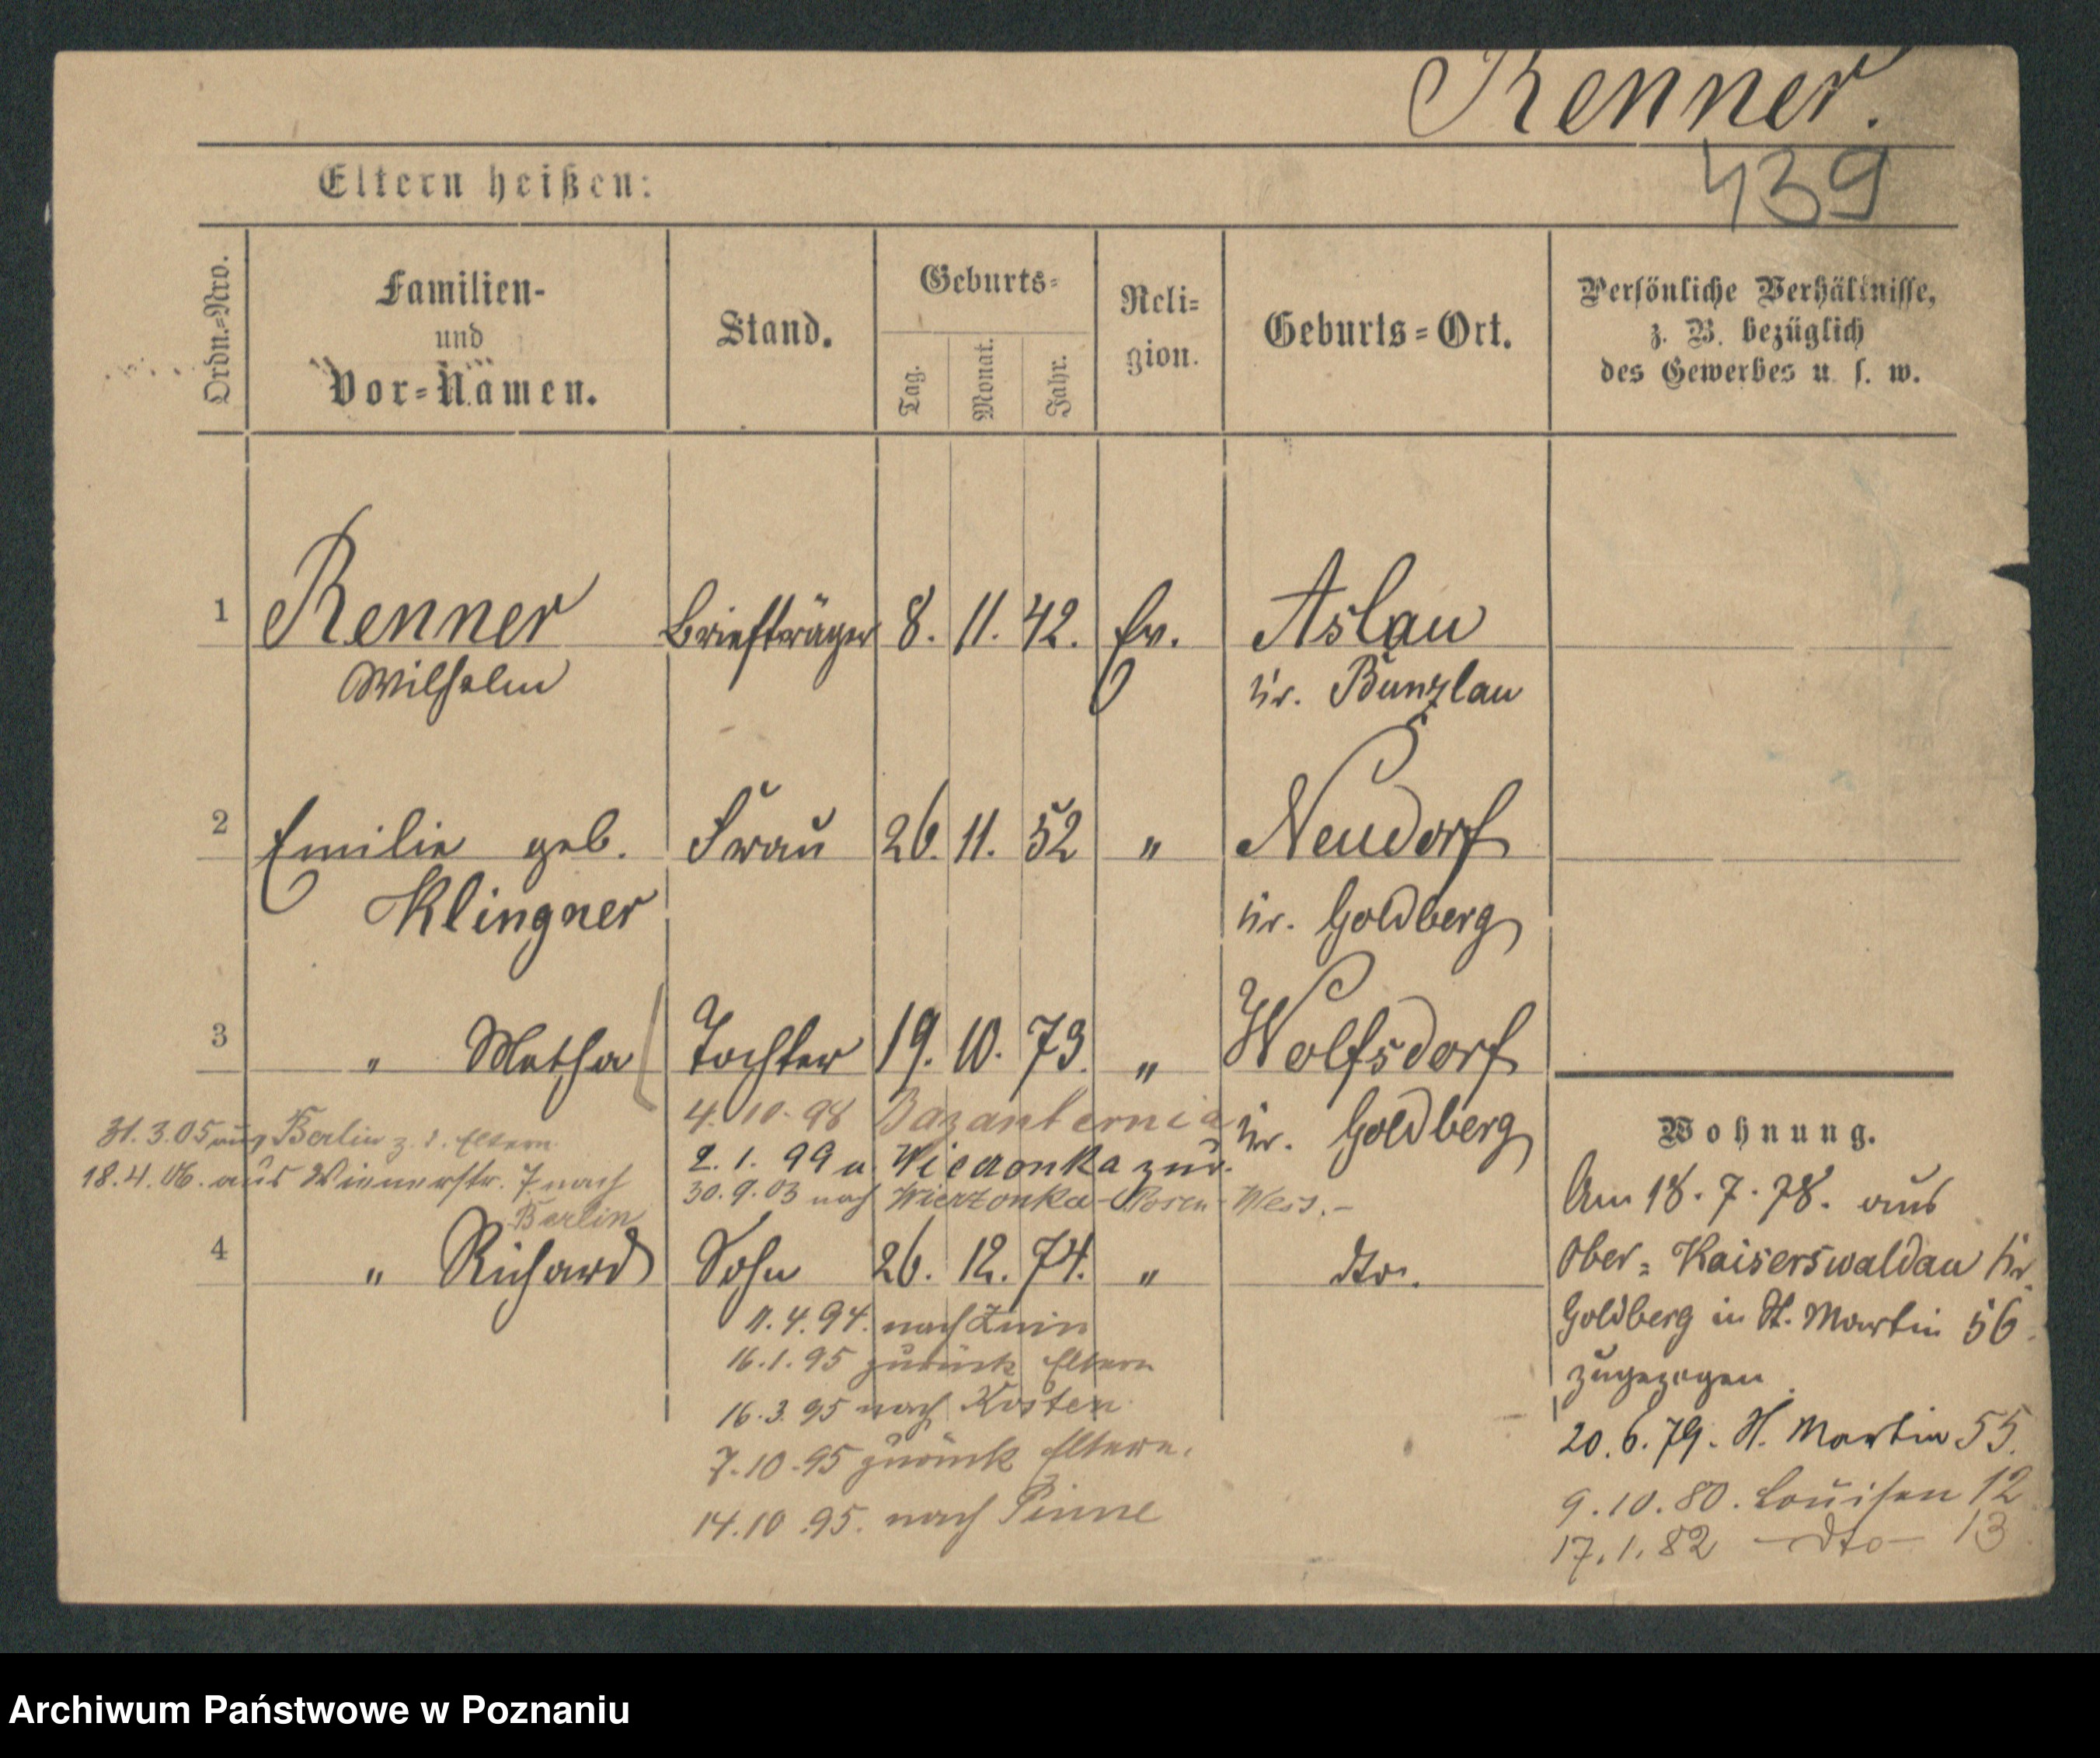 Renner.
439
Eltern heißen:
Ordn.=Nro.
Familien-
und
Vor=Namen.
Stand.
Geburts=
Tag.
Monat.
Jahr.
Reli=
gion.
Geburts=Ort.
Persönliche Verhältnisse,
z. B. bezüglich
des Gewerbes u. s. w.
1 Renner Briefträger 8. 11. 42. Ev. Aslau
Wilhelm Kr. Bunzlau
2 Emilie geb. Frau 26. 11. 52 " Neudorf
Klingner Kr. Goldberg
3 " Martha Tochter 19. 10. 73. " Wolfsdorf
4. 10. 98 Bazanternia Kr. Goldberg
31.3.05 aus Berlin z. d. Eltern
2. 1. 99 a. Wieronka zur.
18.4.06. aus Wienerstr. 7 nach
Berlin
30.9.03 nach Wierzonka-Posen-
4 " Richard Sohn 26. 12. 74. " dto.
11.4.94. nach Znin
16.1.95 zurück Eltern
16.3.95 nach Kosten
7.10.95 zurück Eltern.
14.10.95. nach Pinne
Wohnung.
Am 18.7.78. aus
Ober=Kaiserswaldau Kr.
Goldberg in St. Martin 56.
zugezogen.
20.6.79. St. Martin 55.
9.10.80. Louisen 12
17.1.82 —dto— 13
Archiwum Państwowe w Poznaniu